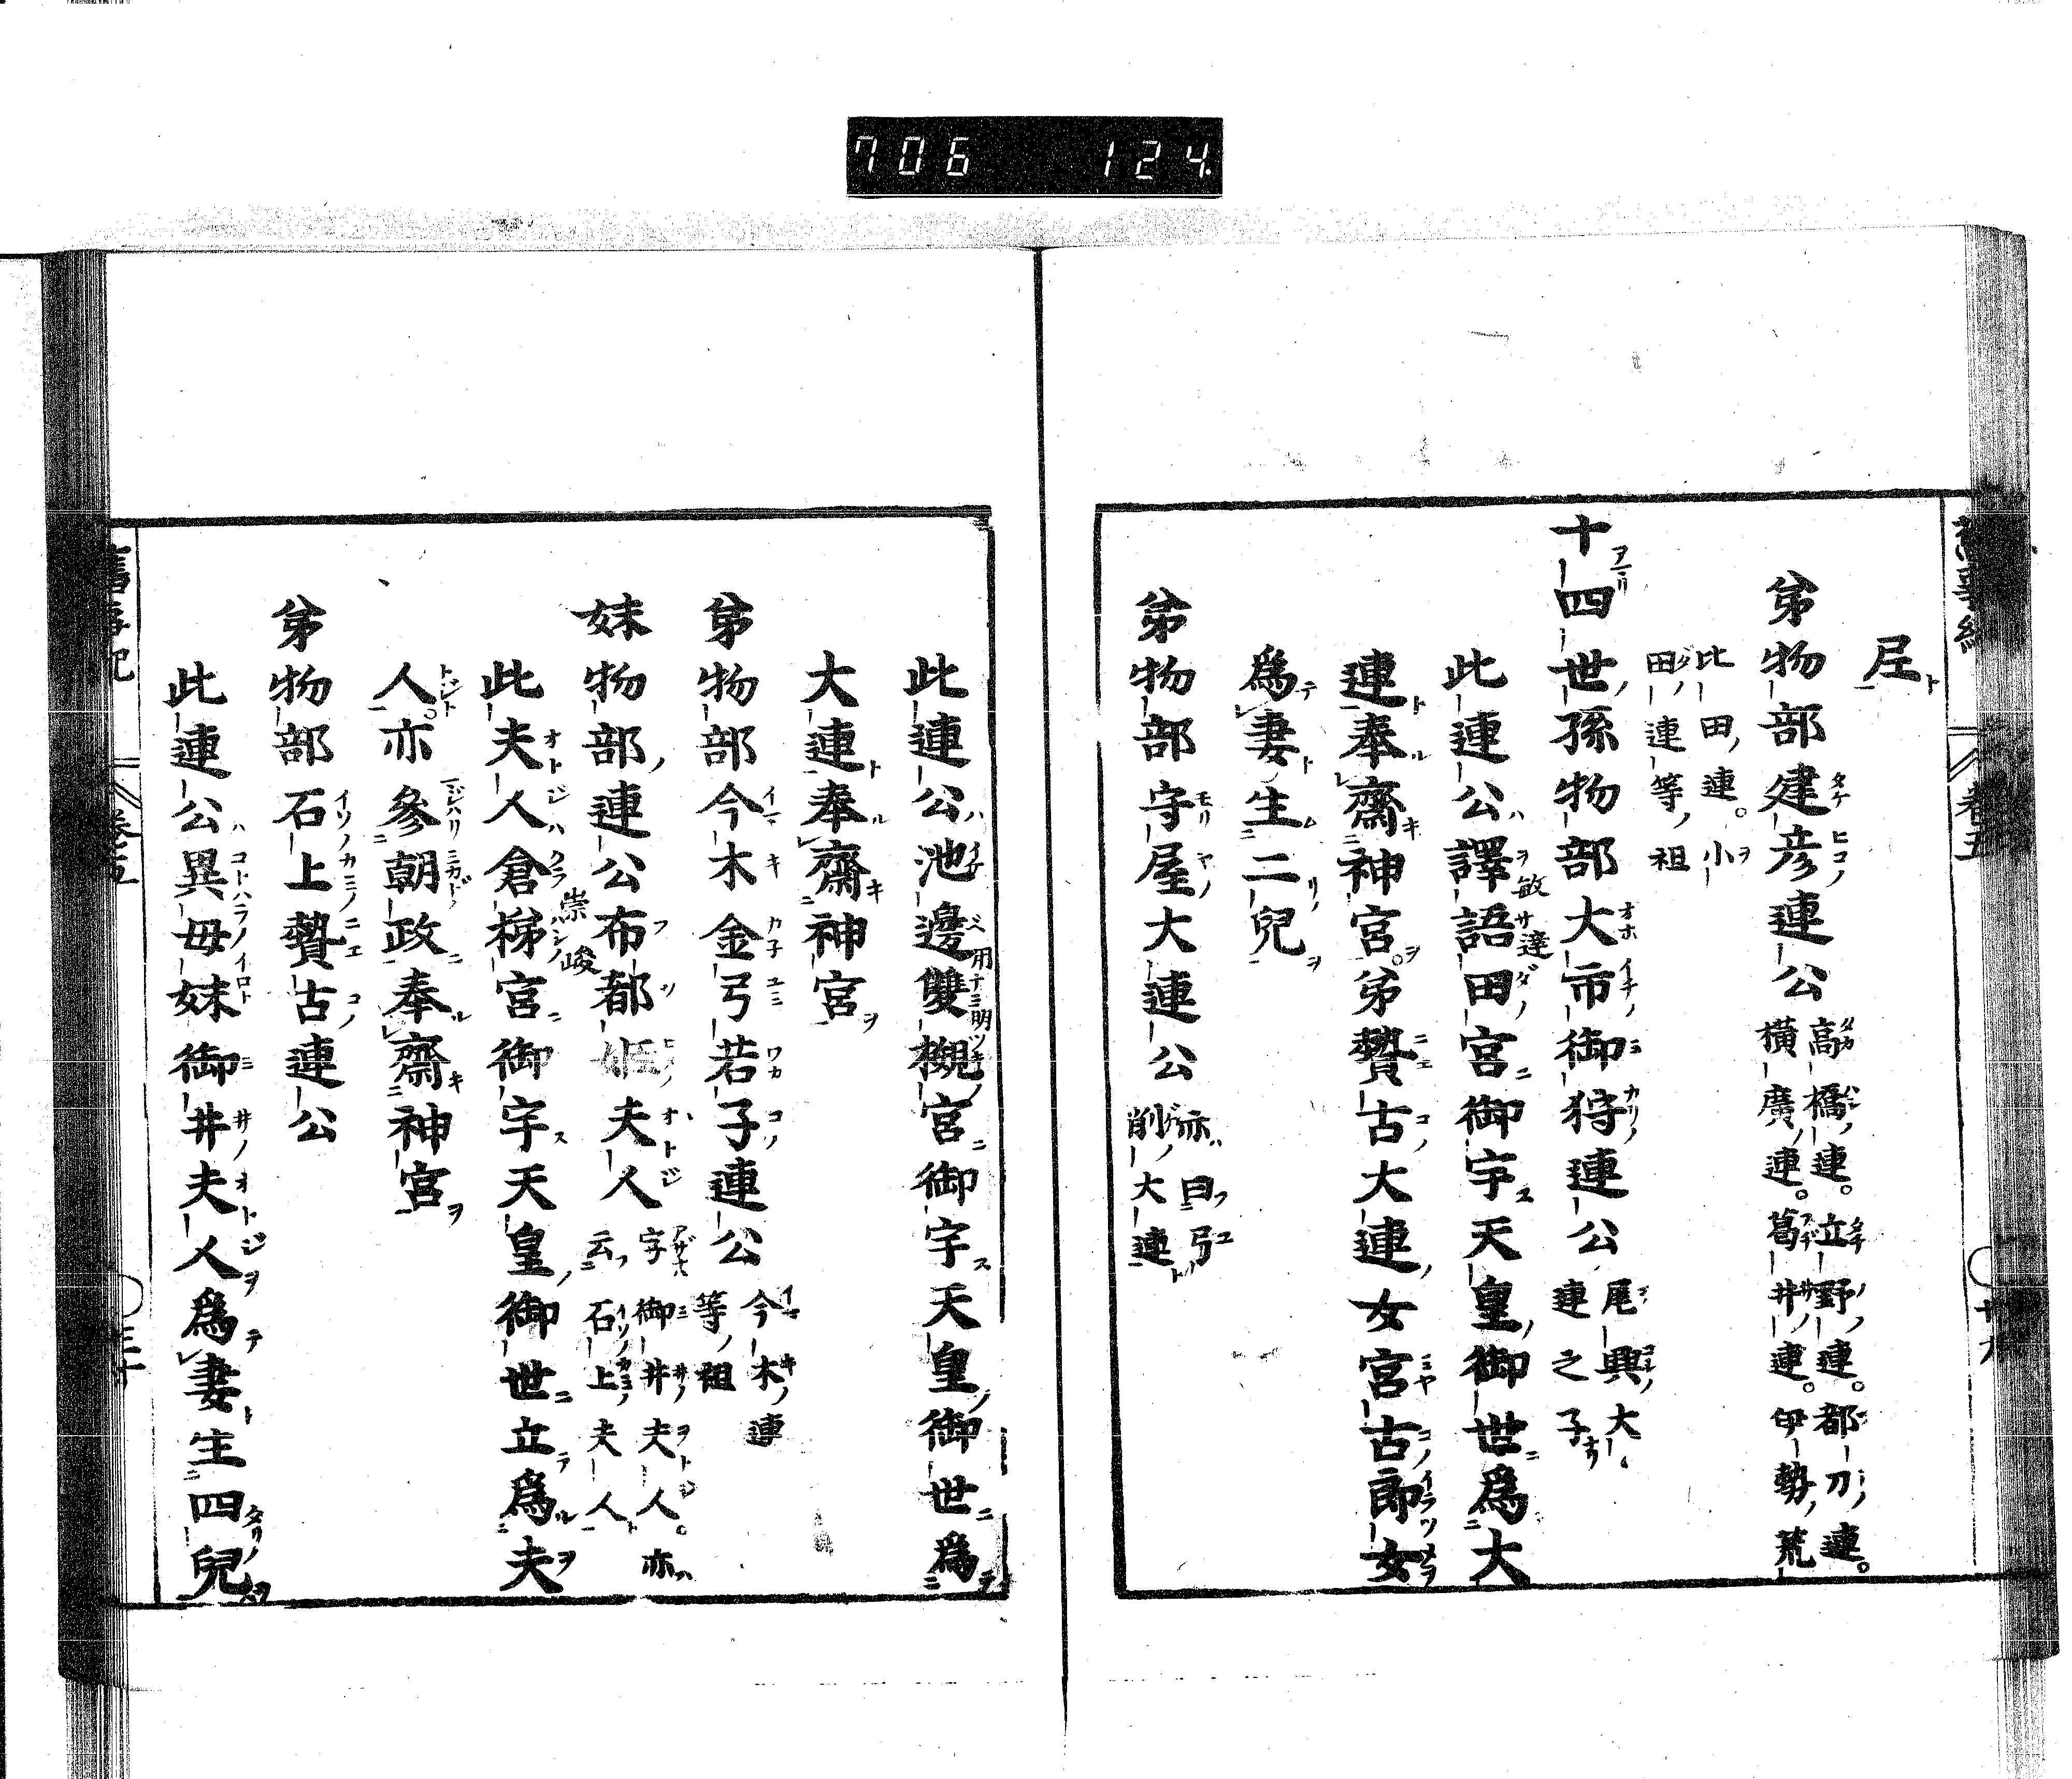 706 124
𡱈
弟物部建彦連公 高橋連。立野連。都刀連。
橫廣連。葛井連。伊勢荒
比田連。小
田連等祖
十四世孫物部大市御狩連公 尾輿大
連之子
此連公譯語田宮御宇天皇御世爲大
敏達
連奉齋神宮。弟贄古大連女宮古郎女
爲妻生二兒
弟物部守屋大連公 亦曰弓
削大連
卷五
此連公池邊雙槻宮御宇天皇御世爲
用明
大連奉齋神宮
弟物部今木金弓若子連公 今木連
等祖
妹物部連公布都姬夫人 字御井夫人。亦
云石上夫人
此夫人倉梯宮御宇天皇御世立爲夫
崇峻
人。亦參朝政奉齋神宮
弟物部石上贄古連公
此連公異母妹御井夫人爲妻生四兒
舊事紀 卷五 三十